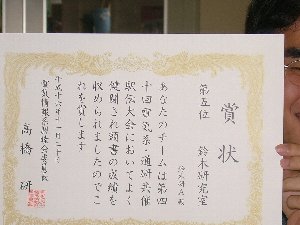 賞状
第五位 鈴木研究室
あなたのチームは第四
十回電気系・通研共催
駅伝大会においてよく
健闘され頭書の成績を
収められましたのでこ
れを賞します
平成十六年十一月二十
高橋 研